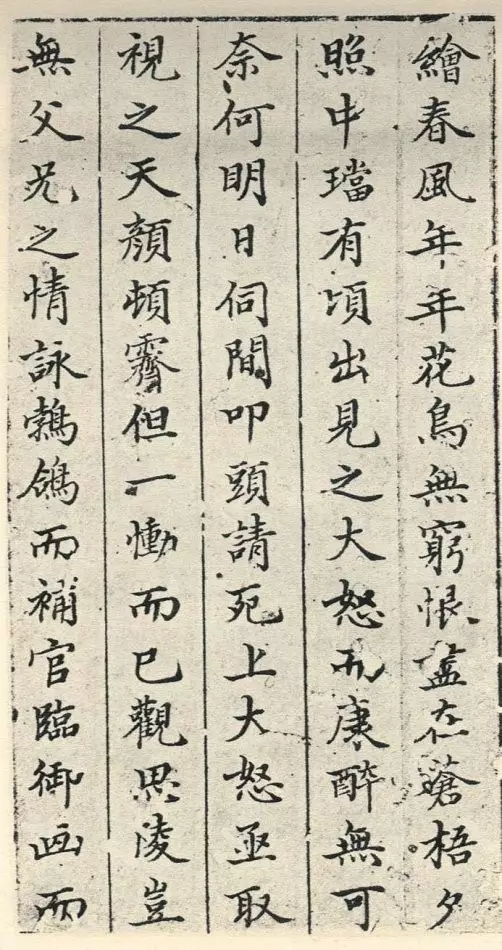 繪春風年年花鳥無窮恨盡在蒼梧夕
照中璫有頃出見之大怒而康醉無可
奈何明日伺間叩頭請死上大怒亟取
視之天顏頓霽但一慟而已觀思陵豈
無父兄之情詠鵓鴿而補官臨御画而